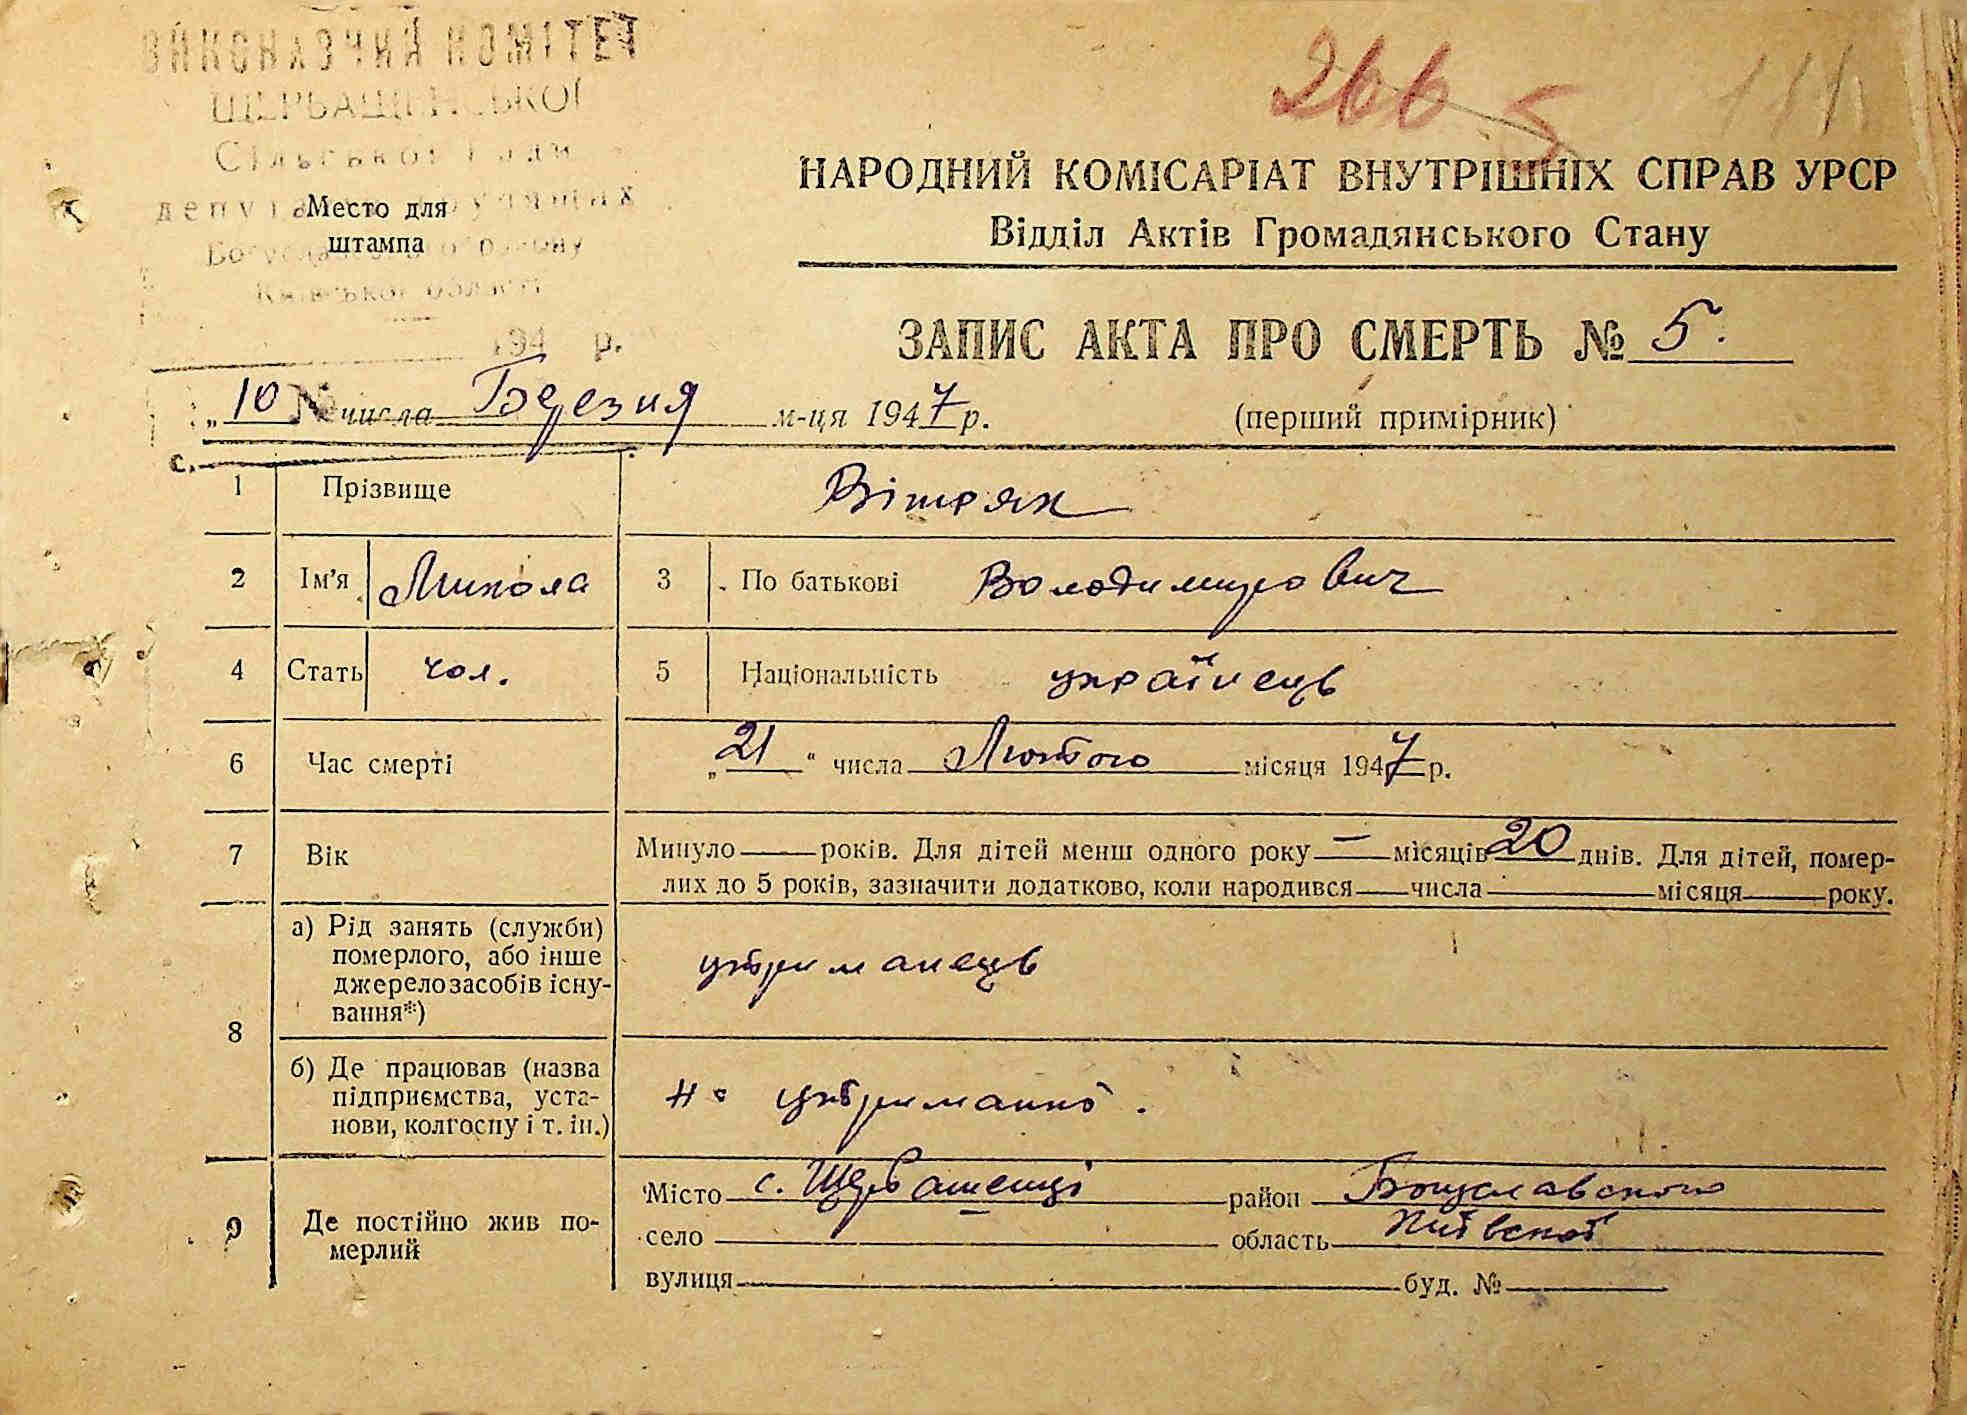 ВИКОНАВЧИЙ КОМІТЕТ
ЩЕРБАШИНСЬКОЇ
Сільської Ради
депутатів трудящих
Богуславського району
Київської області
194 р.
Место для
штампа
266 5
НАРОДНИЙ КОМІСАРІАТ ВНУТРІШНІХ СПРАВ УРСР
Відділ Актів Громадянського Стану
ЗАПИС АКТА ПРО СМЕРТЬ № 5.
„10 числа Березня м-ця 1947 р.
(перший примірник)
1 Прізвище Вітряк
2 Ім'я Микола 3 По батькові Володимирович
4 Стать чол. 5 Національність українець
6 Час смерті „21“ числа Лютого місяця 1947 р.
7 Вік Минуло — років. Для дітей менш одного року — місяців 20 днів. Для дітей, помер-
лих до 5 років, зазначити додатково, коли народився числа місяця року.
8 а) Рід занять (служби)
померлого, або інше
джерело засобів існу-
вання*)
утриманець
б) Де працював (назва
підприємства, уста-
нови, колгоспу і т. ін.)
На утриманні.
9 Де постійно жив по-
мерлий
Місто с. Щербашенці район Богуславського
село область Київської
вулиця буд. №